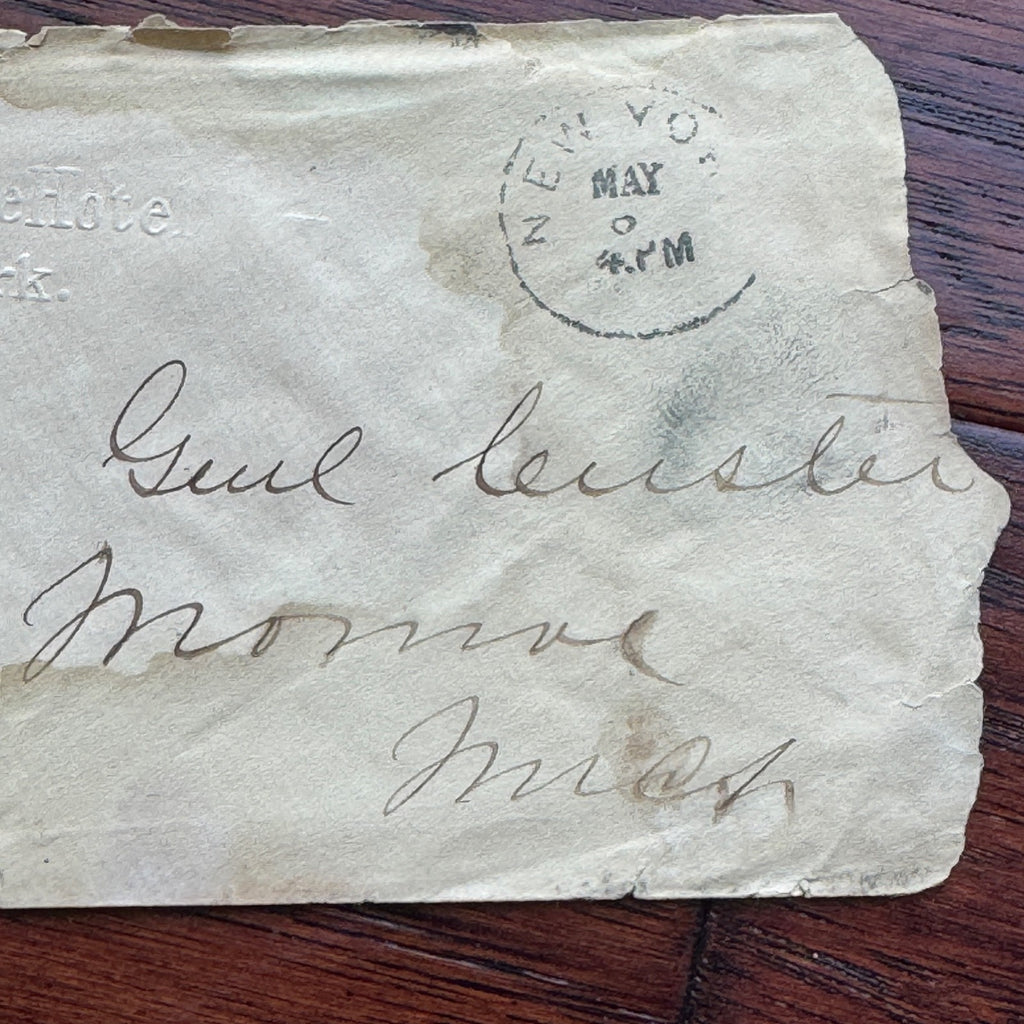 NEW YO
MAY
4.PM
eHotel
rk.
Genl Custer
Monroe
Mich